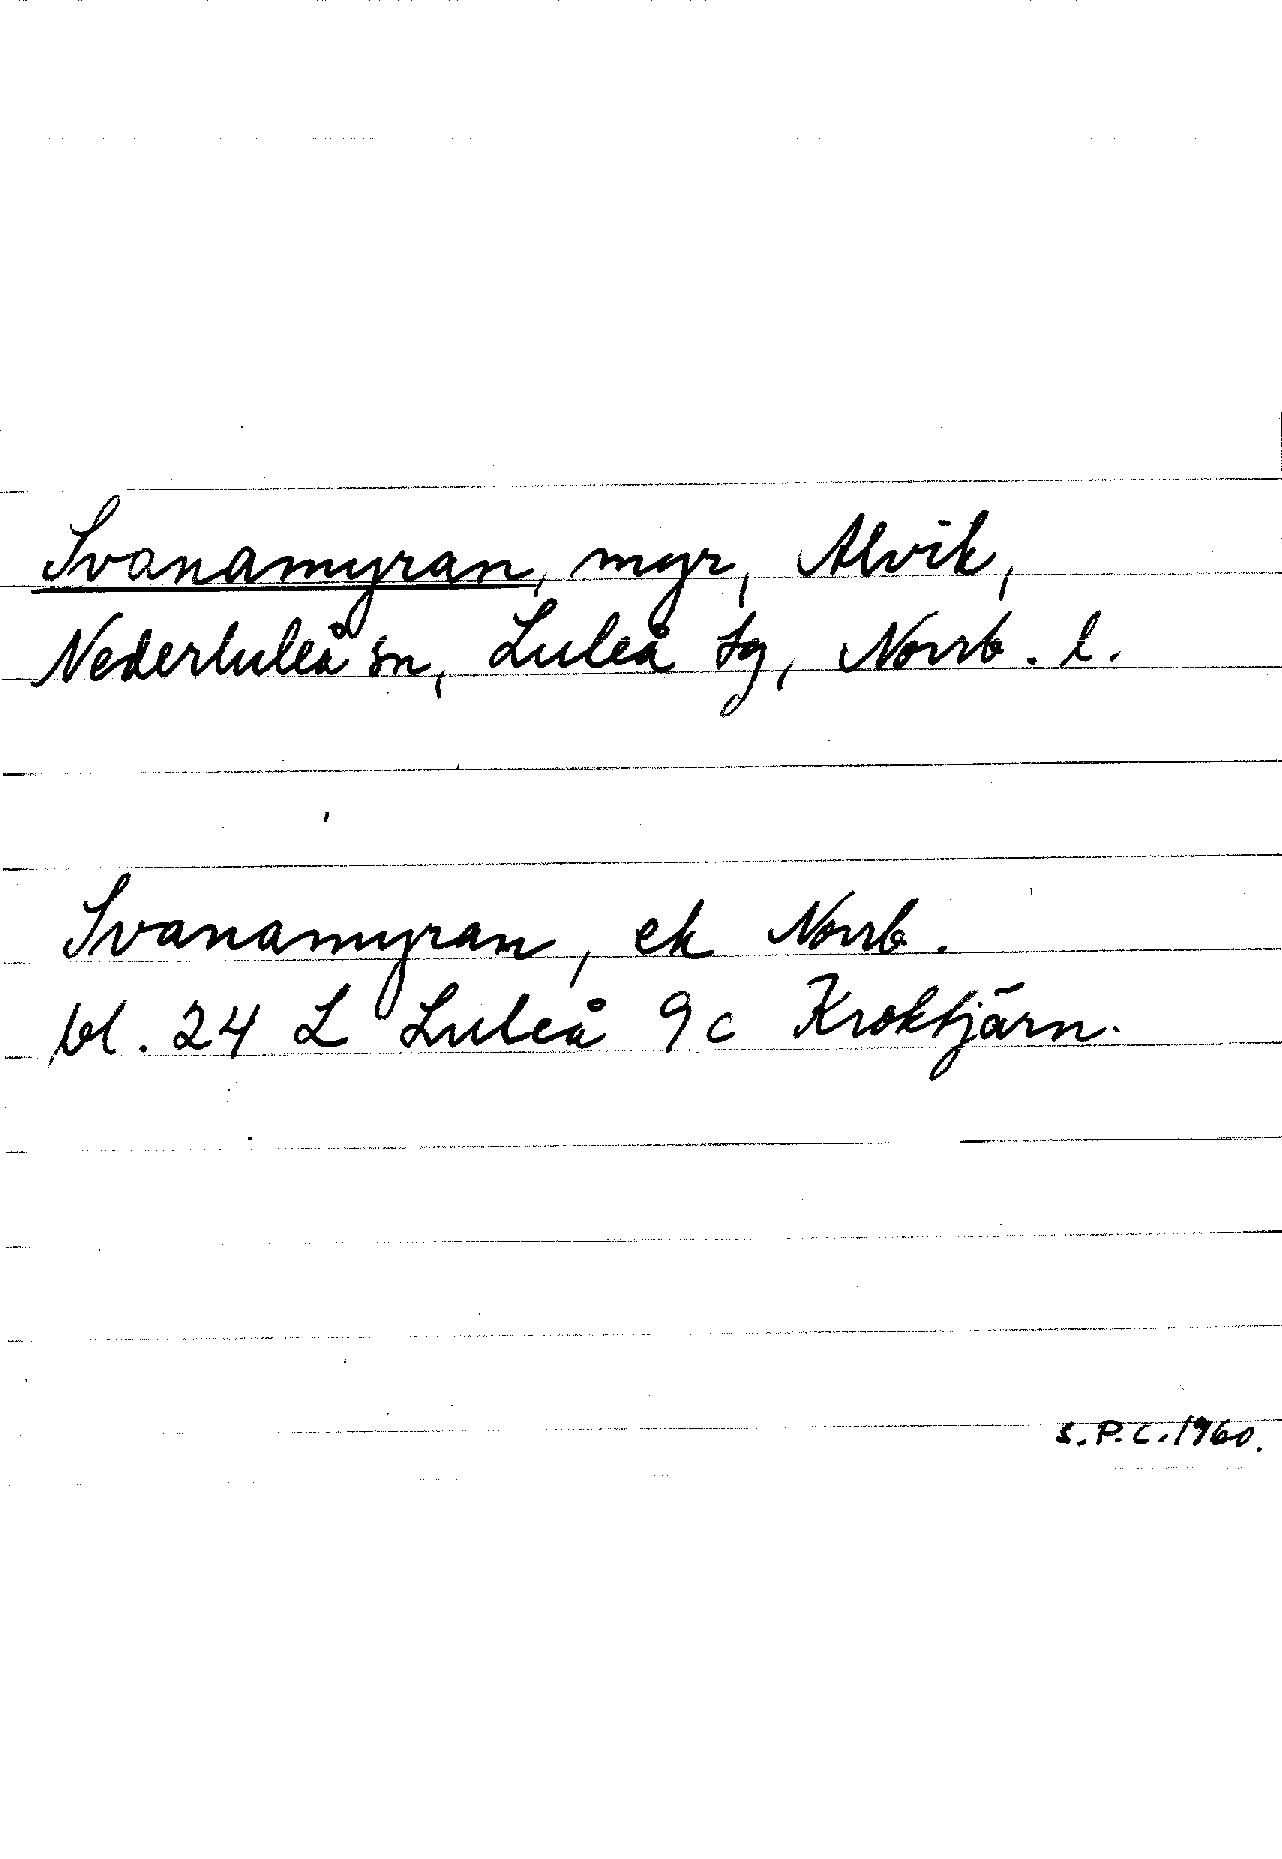 Svanamyran, myr, Alvik,
Nederluleå sn, Luleå tg, Norrb. l.
Svanamyran, ek Norrb.
bl. 24 L Luleå 9c Kroktjärn.
S.P.C. 1960.